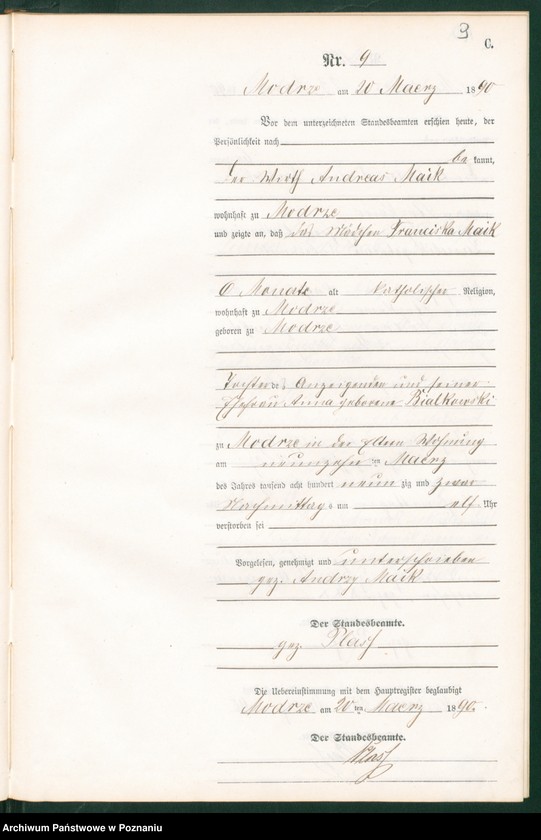 9
C.
Nr. 9
Modrze am 20 Maerz 1890
Vor dem unterzeichneten Standesbeamten erschien heute, der
Persönlichkeit nach
be kannt,
der Wirth Andreas Maik
wohnhaft zu Modrze
und zeigte an, daß das Mädchen Franciska Maik
6 Monate alt katholischer Religion,
wohnhaft zu Modrze
geboren zu Modrze
Tochter des Anzeigenden und seiner
Ehefrau Anna geborene Bialkowski
zu Modrze in der Wohnung
am neunzehn ten Maerz
des Jahres tausend acht hundert neun zig und zwar
Nachmittag s um elf Uhr
verstorben sei
Vorgelesen, genehmigt und unterschrieben
gez. Andrzy Maik
Der Standesbeamte.
gez.
Die Uebereinstimmung mit dem Hauptregister beglaubigt
Modrze am 20 ten Maerz 1890.
Der Standesbeamte.
Archiwum Państwowe w Poznaniu